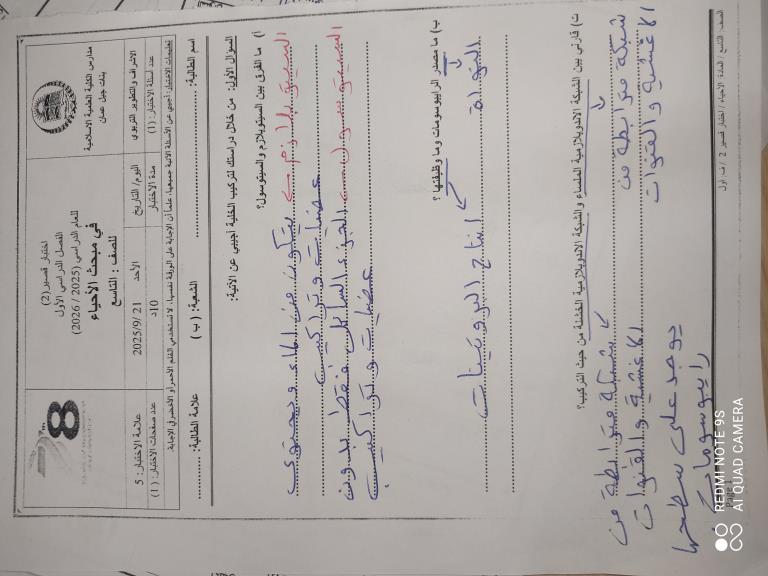 مدارس الكلية العلمية الاسلامية
بنات جبل عمان
اختبار قصير (2)
الفصل الدراسي الأول
للعام الدراسي (2025 / 2026)
في مبحث الأحياء
للصف : التاسع
الاشراف والتطوير التربوي
اليوم/ التاريخ
الأحد 21 /2025/9
علامة الاختبار: 5
عدد أسئلة الاختبار: (1)
مدة الاختبار
10د
عدد صفحات الاختبار: (1)
تعليمات الاختبار: اجيبي عن الأسئلة الآتية جميعها، علماً أن الإجابة على الورقة نفسها، لا تستخدمي القلم الأحمر أو الأخضر في الاجابة.
اسم الطالبة: الشعبة: ( ب ) علامة الطالبة:
السؤال الأول: من خلال دراستك لتركيب الخلية اجيبي عن الآتية:
أ) ما الفرق بين السيتوبلازم والسيتوسول؟
السيتوبلازم يتكون من الماء ويحتوي
عضيات وتراكيب
السيتوسول الجزء السائل فقط بدون
عضيات وتراكيب
ب) ما مصدر الرايبوسومات وما وظيفتها ؟
النواة انتاج البروتينات
ت) قارني بين الشبكة الاندوبلازمية الملساء والشبكة الاندوبلازمية الخشنة من حيث التركيب؟
شبكة مترابطة من
الاغشية والقنوات
شبكة مترابطة من
الاغشية والقنوات
يوجد على سطحها
رايبوسومات
الصف: التاسع / المادة: الأحياء / اختبار قصير 2 / ف. أول
Page 1
REDMI NOTE 9S
AI QUAD CAMERA